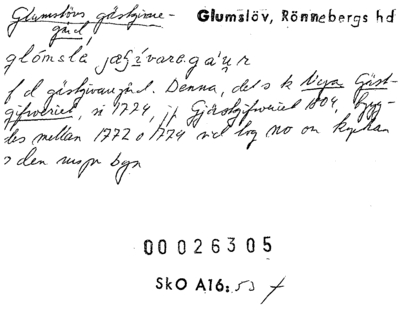 Glumslövs gästgivare-
gård
Glumslöv, Rönnebergs hd
glómslá jæʃívaregáur
f d gästgivaregård. Denna, det s k Nya Gäst-
gifveriet, 1774, Gjästgifveriet 1804, byg-
des mellan 1772 o 1774 vid lvg no om kyrkan
o den urspr byn
00026305
SkO A16:53